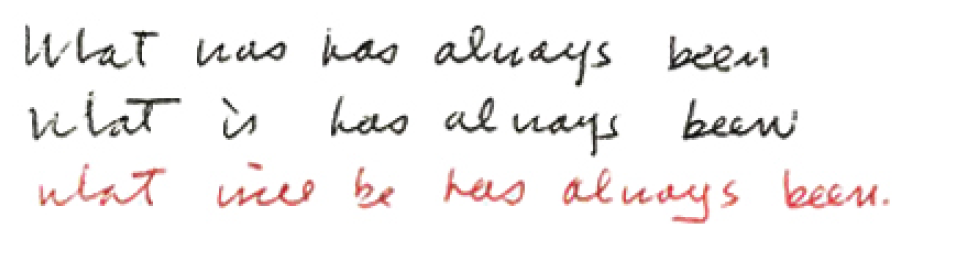 What was has always been
What is has always been
what will be has always been.